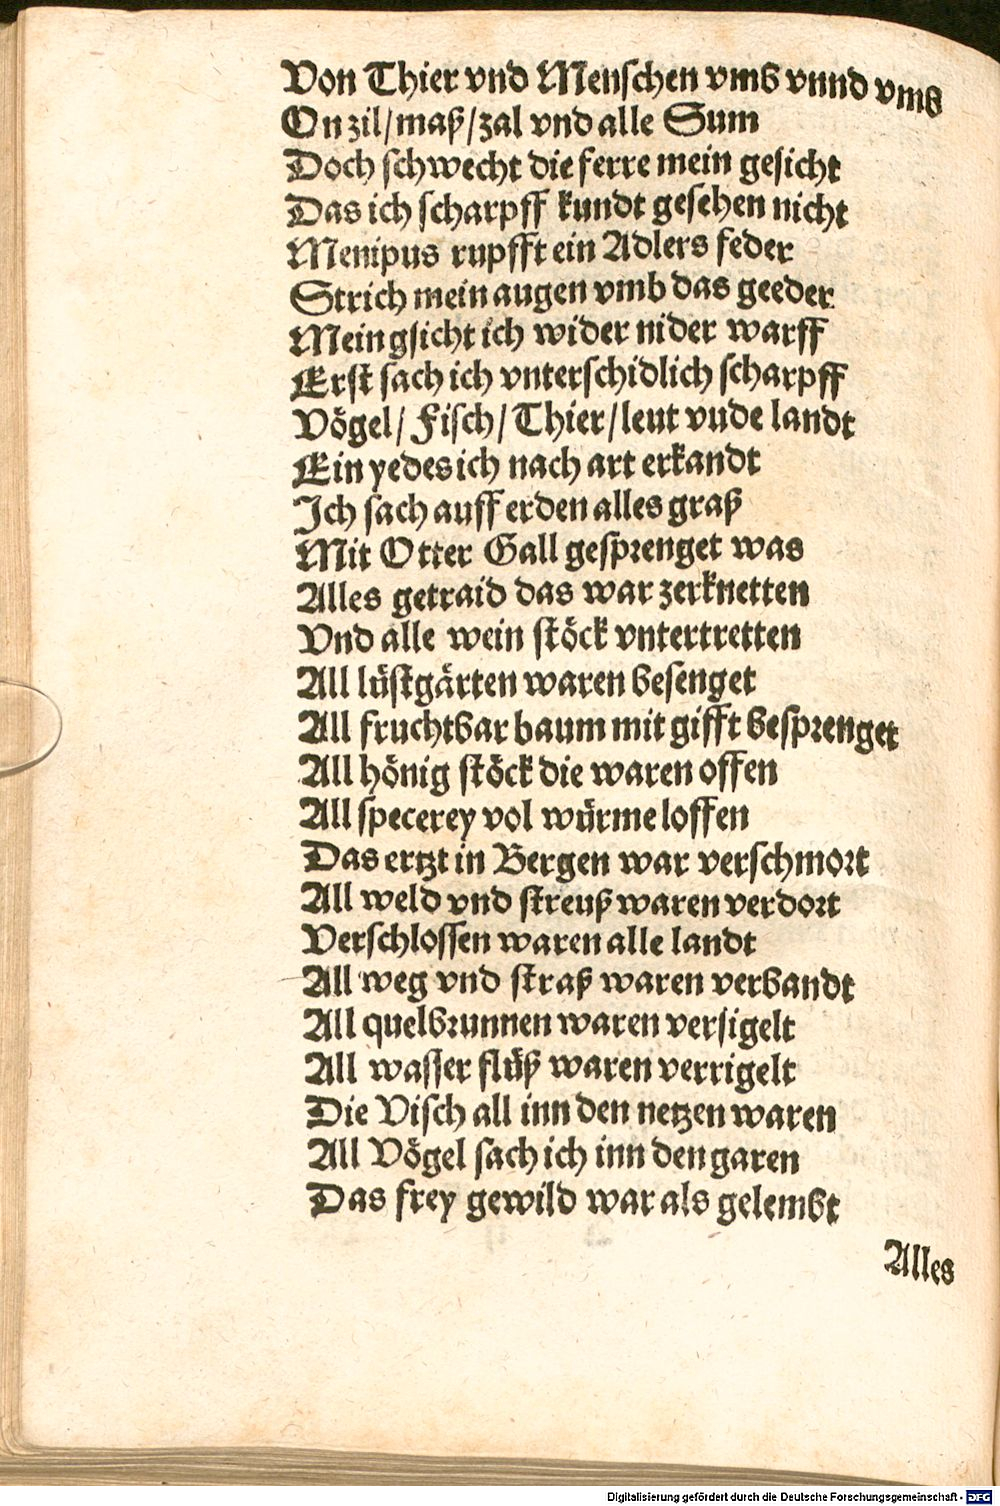 Von Thier vnd Menschen vmb vnnd vmb
On zil/maß/zal vnd alle Sum
Doch schwecht die ferre mein gesicht
Das ich scharpff kundt gesehen nicht
Menipus rupfft ein Adlers feder
Strich mein augen vmb das geeder
Mein gsicht ich wider nider warff
Erst sach ich vnterschidlich scharpff
Vögel/Fisch/Thier/leut vude landt
Ein yedes ich nach art erkandt
Ich sach auff erden alles graß
Mit Otter Gall gesprenget was
Alles getraid das war zerknetten
Vnd alle wein stöck vntertretten
All lüstgärten waren besenget
All fruchtbar baum mit gifft besprenget
All hönig stöck die waren offen
All specerey vol würme loffen
Das ertzt in Bergen war verschmort
All weld vnd streuß waren verdort
Verschlossen waren alle landt
All weg vnd straß waren verbandt
All quelbrunnen waren versigelt
All wasser flüß waren verrigelt
Die Visch all inn den netzen waren
All Vögel sach ich inn den garen
Das frey gewild war als gelembt
Alles
Digitalisierung gefördert durch die Deutsche Forschungsgemeinschaft - DFG